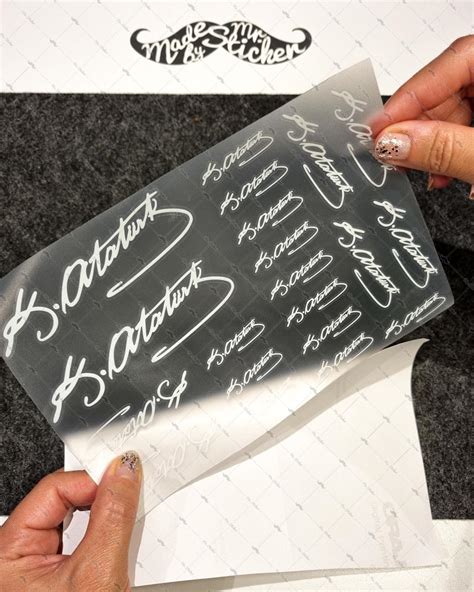 Made by Mr. Sticker
K. Ataturk
K. Ataturk
K. Ataturk
K. Ataturk
K. Ataturk
K. Ataturk
K. Ataturk
K. Ataturk
K. Ataturk
K. Ataturk
K. Ataturk
K. Ataturk
K. Ataturk
K. Ataturk
K. Ataturk
K. Ataturk